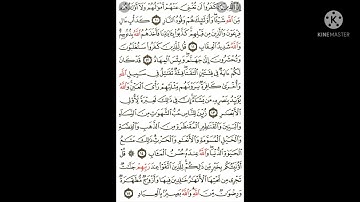 Made with
KINEMASTER
إِنَّ ٱلَّذِينَ كَفَرُوا۟ لَن تُغْنِىَ عَنْهُمْ أَمْوَٰلُهُمْ وَلَآ أَوْلَٰدُهُم
مِّنَ ٱللَّهِ شَيْـًٔا وَأُو۟لَٰٓئِكَ هُمْ وَقُودُ ٱلنَّارِ ١٠ كَدَأْبِ ءَالِ
فِرْعَوْنَ وَٱلَّذِينَ مِن قَبْلِهِمْ كَذَّبُوا۟ بِـَٔايَٰتِنَا فَأَخَذَهُمُ ٱللَّهُ بِذُنُوبِهِمْ
وَٱللَّهُ شَدِيدُ ٱلْعِقَابِ ١١ قُل لِّلَّذِينَ كَفَرُوا۟ سَتُغْلَبُونَ
وَتُحْشَرُونَ إِلَىٰ جَهَنَّمَ وَبِئْسَ ٱلْمِهَادُ ١٢ قَدْ كَانَ
لَكُمْ ءَايَةٌ فِى فِئَتَيْنِ ٱلْتَقَتَا فِئَةٌ تُقَٰتِلُ فِى سَبِيلِ ٱللَّهِ
وَأُخْرَىٰ كَافِرَةٌ يَرَوْنَهُم مِّثْلَيْهِمْ رَأْىَ ٱلْعَيْنِ وَٱللَّهُ
يُؤَيِّدُ بِنَصْرِهِۦ مَن يَشَآءُ إِنَّ فِى ذَٰلِكَ لَعِبْرَةً لِّأُو۟لِى
ٱلْأَبْصَٰرِ ١٣ زُيِّنَ لِلنَّاسِ حُبُّ ٱلشَّهَوَٰتِ مِنَ ٱلنِّسَآءِ
وَٱلْبَنِينَ وَٱلْقَنَٰطِيرِ ٱلْمُقَنطَرَةِ مِنَ ٱلذَّهَبِ وَٱلْفِضَّةِ
وَٱلْخَيْلِ ٱلْمُسَوَّمَةِ وَٱلْأَنْعَٰمِ وَٱلْحَرْثِ ذَٰلِكَ مَتَٰعُ
ٱلْحَيَوٰةِ ٱلدُّنْيَا وَٱللَّهُ عِندَهُۥ حُسْنُ ٱلْمَـَٔابِ ١٤ قُلْ
أَؤُنَبِّئُكُم بِخَيْرٍ مِّن ذَٰلِكُمْ لِلَّذِينَ ٱتَّقَوْا۟ عِندَ رَبِّهِمْ جَنَّٰتٌ
تَجْرِى مِن تَحْتِهَا ٱلْأَنْهَٰرُ خَٰلِدِينَ فِيهَا وَأَزْوَٰجٌ مُّطَهَّرَةٌ
وَرِضْوَٰنٌ مِّنَ ٱللَّهِ وَٱللَّهُ بَصِيرٌۢ بِٱلْعِبَادِ ١٥